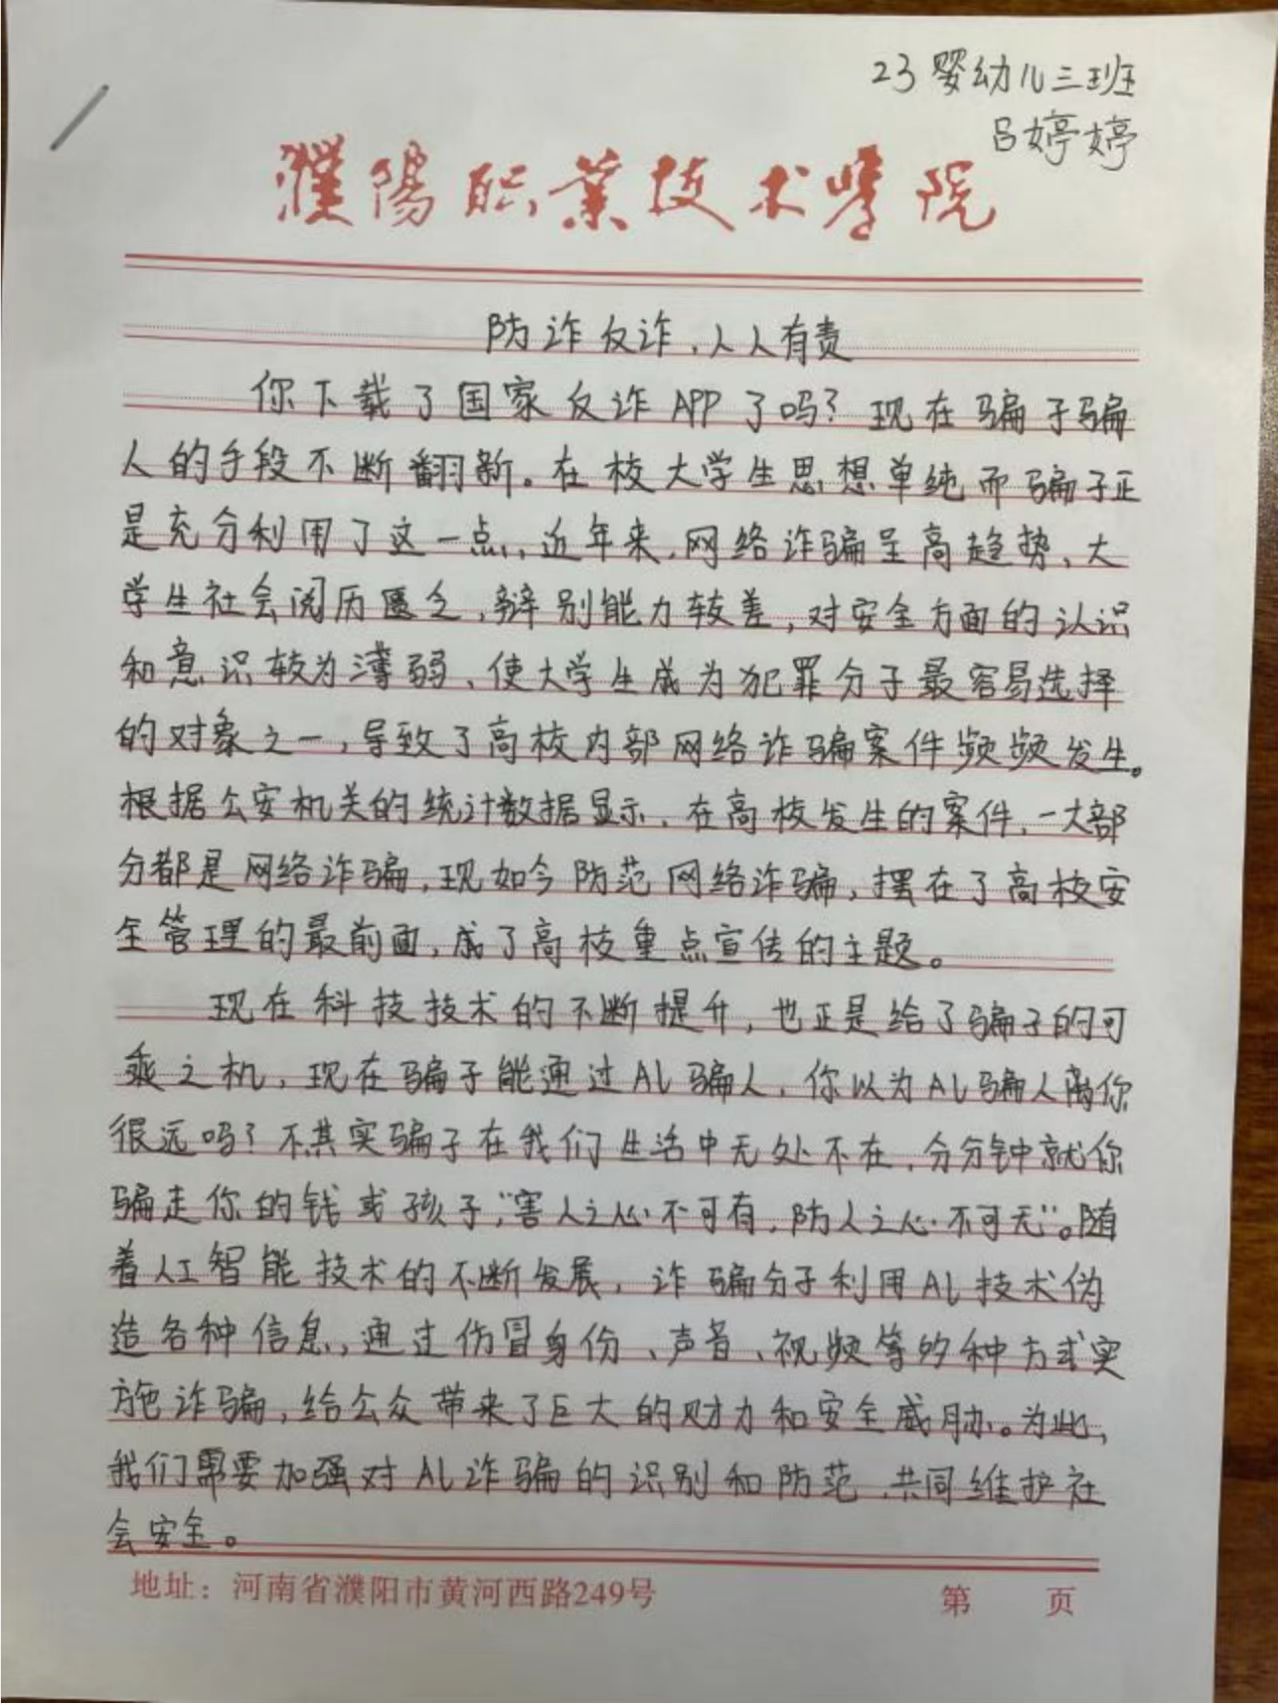 23婴幼儿三班
吕婷婷
濮陽职業技术學院
防诈反诈,人人有责
你下载了国家反诈APP了吗?现在骗子骗
人的手段不断翻新。在校大学生思想单纯而骗子正
是充分利用了这一点,近年来,网络诈骗呈高趋势、大
学生社会阅历匮乏,辩别能力较差,对安全方面的认识
和意识较为薄弱、使大学生成为犯罪分子最容易选择
的对象之一,导致了高校内部网络诈骗案件频频发生。
根据公安机关的统计数据显示,在高校发生的案件,一大部
分都是网络诈骗,现如今防范网络诈骗,摆在了高校安
全管理的最前面,成了高校重点宣传的主题。
现在科技技术的不断提升,也正是给了骗子的可
乘之机,现在骗子能通过AL骗人,你以为AL骗人离你
很远吗?不其实骗子在我们生活中无处不在,分分钟就你
骗走你的钱或孩子,“害人之心不可有,防人之心不可无”。随
着人工智能技术的不断发展,诈骗分子利用AL技术伪
造各种信息,通过仿冒身份、声音、视频等多种方式实
施诈骗,给公众带来了巨大的财力和安全威胁。为此,
我们需要加强对AL诈骗的识别和防范,共同维护社
会安全。
地址:河南省濮阳市黄河西路249号 第 页